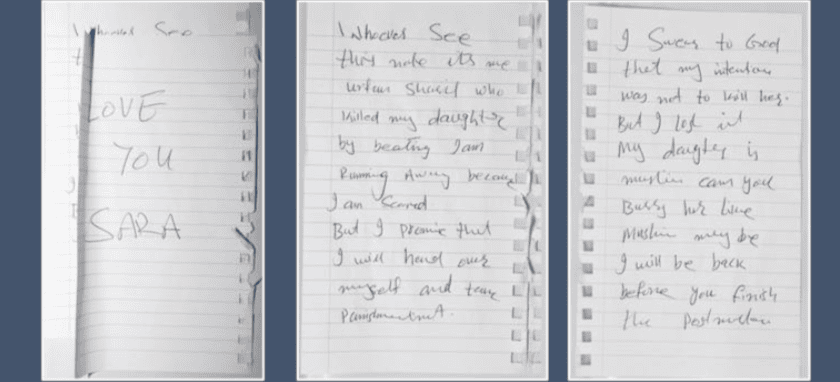 Whoever See
LOVE
YOU
SARA
Whoever See
this note its me
urfan sharif who
killed my daughter
by beating I am
Running Away because
I am Scared
But I promise that
I will hand over
myself and take
Punishment.
I Swear to God
that my intention
was not to kill her.
But I lost it
My daughter is
muslim can you
Bury her like
Muslim may be
I will be back
before you finish
the Postmortem